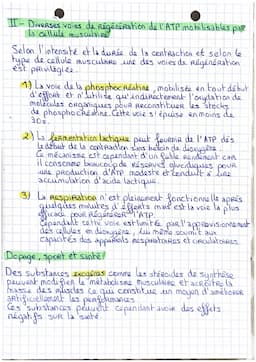 II - Diverses voies de régénération de l'ATP mobilisables par
la cellule musculaire
Selon l'intensité et la durée de la contraction et selon le
type de cellule musculaire une des voies de régénération
est privilégiée.
1) La voie de la phosphocréatine, mobilisée en tout début
d'effort et n'utilise qu'indirectement l'oxydation de
molécules organiques pour reconstituer les stocks
de phosphocréatine. Cette voie s'épuise en moins de
30s.
2) La fermentation lactique peut fournir de l'ATP dès
le début de la contraction sans besoin de dioxygène.
Ce mécanisme est cependant d'un faible rendement car
il consomme beaucoup de réserves glucidiques pour
une production d'ATP modeste et conduit à une
accumulation d'acide lactique.
3) La respiration n'est pleinement fonctionnelle après
quelques minutes d'efforts mais est la voie la plus
efficace pour régénérer l'ATP.
Cependant cette voie est limitée par l'approvisionnement
des cellules en dioxygène, lui même soumit aux
capacités des appareils respiratoires et circulatoires.
Dopage, sport et santé
Des substances exogènes comme les stéroïdes de synthèse
peuvent modifier le métabolisme musculaire et accroître la
masse des muscles ce qui constitue un moyen d'améliorer
artificiellement les performances.
Ces substances peuvent cependant avoir des effets
négatifs sur la santé.